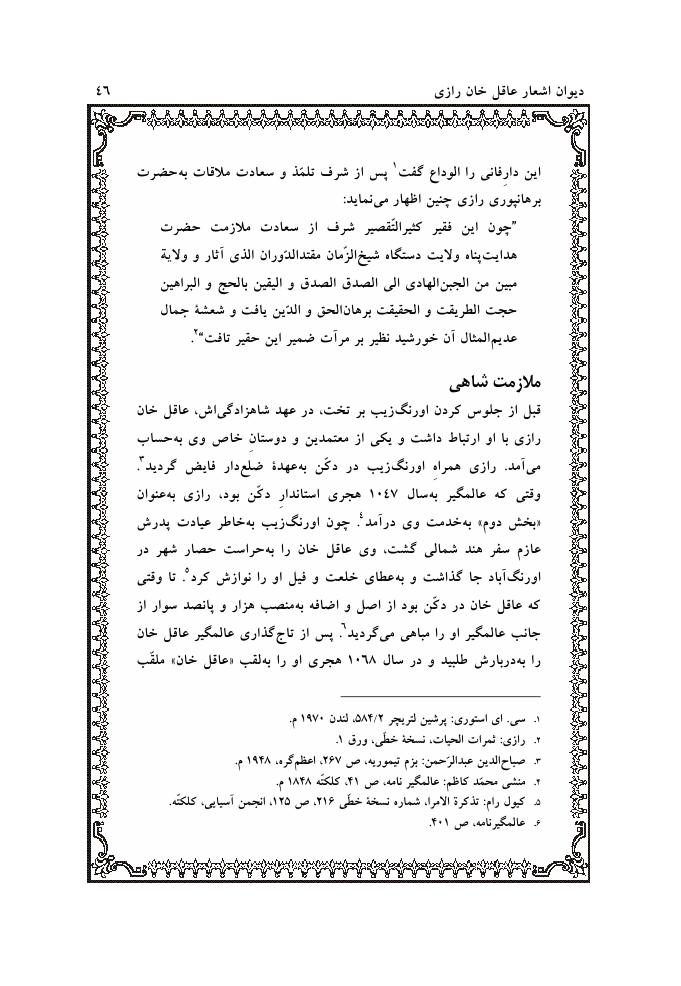 دیوان اشعار عاقل خان رازی ٤٦
این دارِفانی را الوداع گفت۱ پس از شرف تلمّذ و سعادت ملاقات به‌حضرت
برهانپوری رازی چنین اظهار می‌نماید:
"چون این فقیر کثیرالتّقصیر شرف از سعادت ملازمت حضرت
هدایت‌پناه ولایت دستگاه شیخ‌الزّمان مقتدالدّوران الذی آثار و ولایة
مبین من الجبن‌الهادی الی الصدق الصدق و الیقین بالحج و البراهین
حجت الطریقت و الحقیقت برهان‌الحق و الدّین یافت و شعشهٔ جمال
عدیم‌المثال آن خورشید نظیر بر مرآت ضمیر این حقیر تافت"۲.
ملازمت شاهی
قبل از جلوس کردن اورنگ‌زیب بر تخت، در عهد شاهزادگی‌اش، عاقل خان
رازی با او ارتباط داشت و یکی از معتمدین و دوستانِ خاص وی به‌حساب
می‌آمد. رازی همراهِ اورنگ‌زیب در دکّن به‌عهدهٔ ضلع‌دار فایض گردید۳.
وقتی که عالمگیر به‌سال ۱۰٤۷ هجری استاندارِ دکّن بود، رازی به‌عنوان
«بخش دوم» به‌خدمت وی درآمد٤. چون اورنگ‌زیب به‌خاطر عیادت پدرش
عازم سفر هند شمالی گشت، وی عاقل خان را به‌حراست حصار شهر در
اورنگ‌آباد جا گذاشت و به‌عطای خلعت و فیل او را نوازش کرد۵. تا وقتی
که عاقل خان در دکّن بود از اصل و اضافه به‌منصب هزار و پانصد سوار از
جانب عالمگیر او را مباهی می‌گردید٦. پس از تاج‌گذاری عالمگیر عاقل خان
را به‌دربارش طلبید و در سال ۱۰٦۸ هجری او را به‌لقب «عاقل خان» ملقّب
۱. سی. ای استوری: پرشین لتریچر ۵۸۴/۲، لندن ۱۹۷۰ م.
۲. رازی: ثمرات الحیات، نسخهٔ خطّی، ورق ۱.
۳. صباح‌الدین عبدالرّحمن: بزم تیموریه، ص ۲۶۷، اعظم‌گره، ۱۹۴۸ م.
۴. منشی محمّد کاظم: عالمگیر نامه، ص ۴۱، کلکتّه ۱۸۴۸ م.
۵. کیول رام: تذکرة الامرا، شماره نسخهٔ خطّی ۲۱۶، ص ۱۲۵، انجمن آسیایی، کلکتّه.
۶. عالمگیرنامه، ص ۴۰۱.